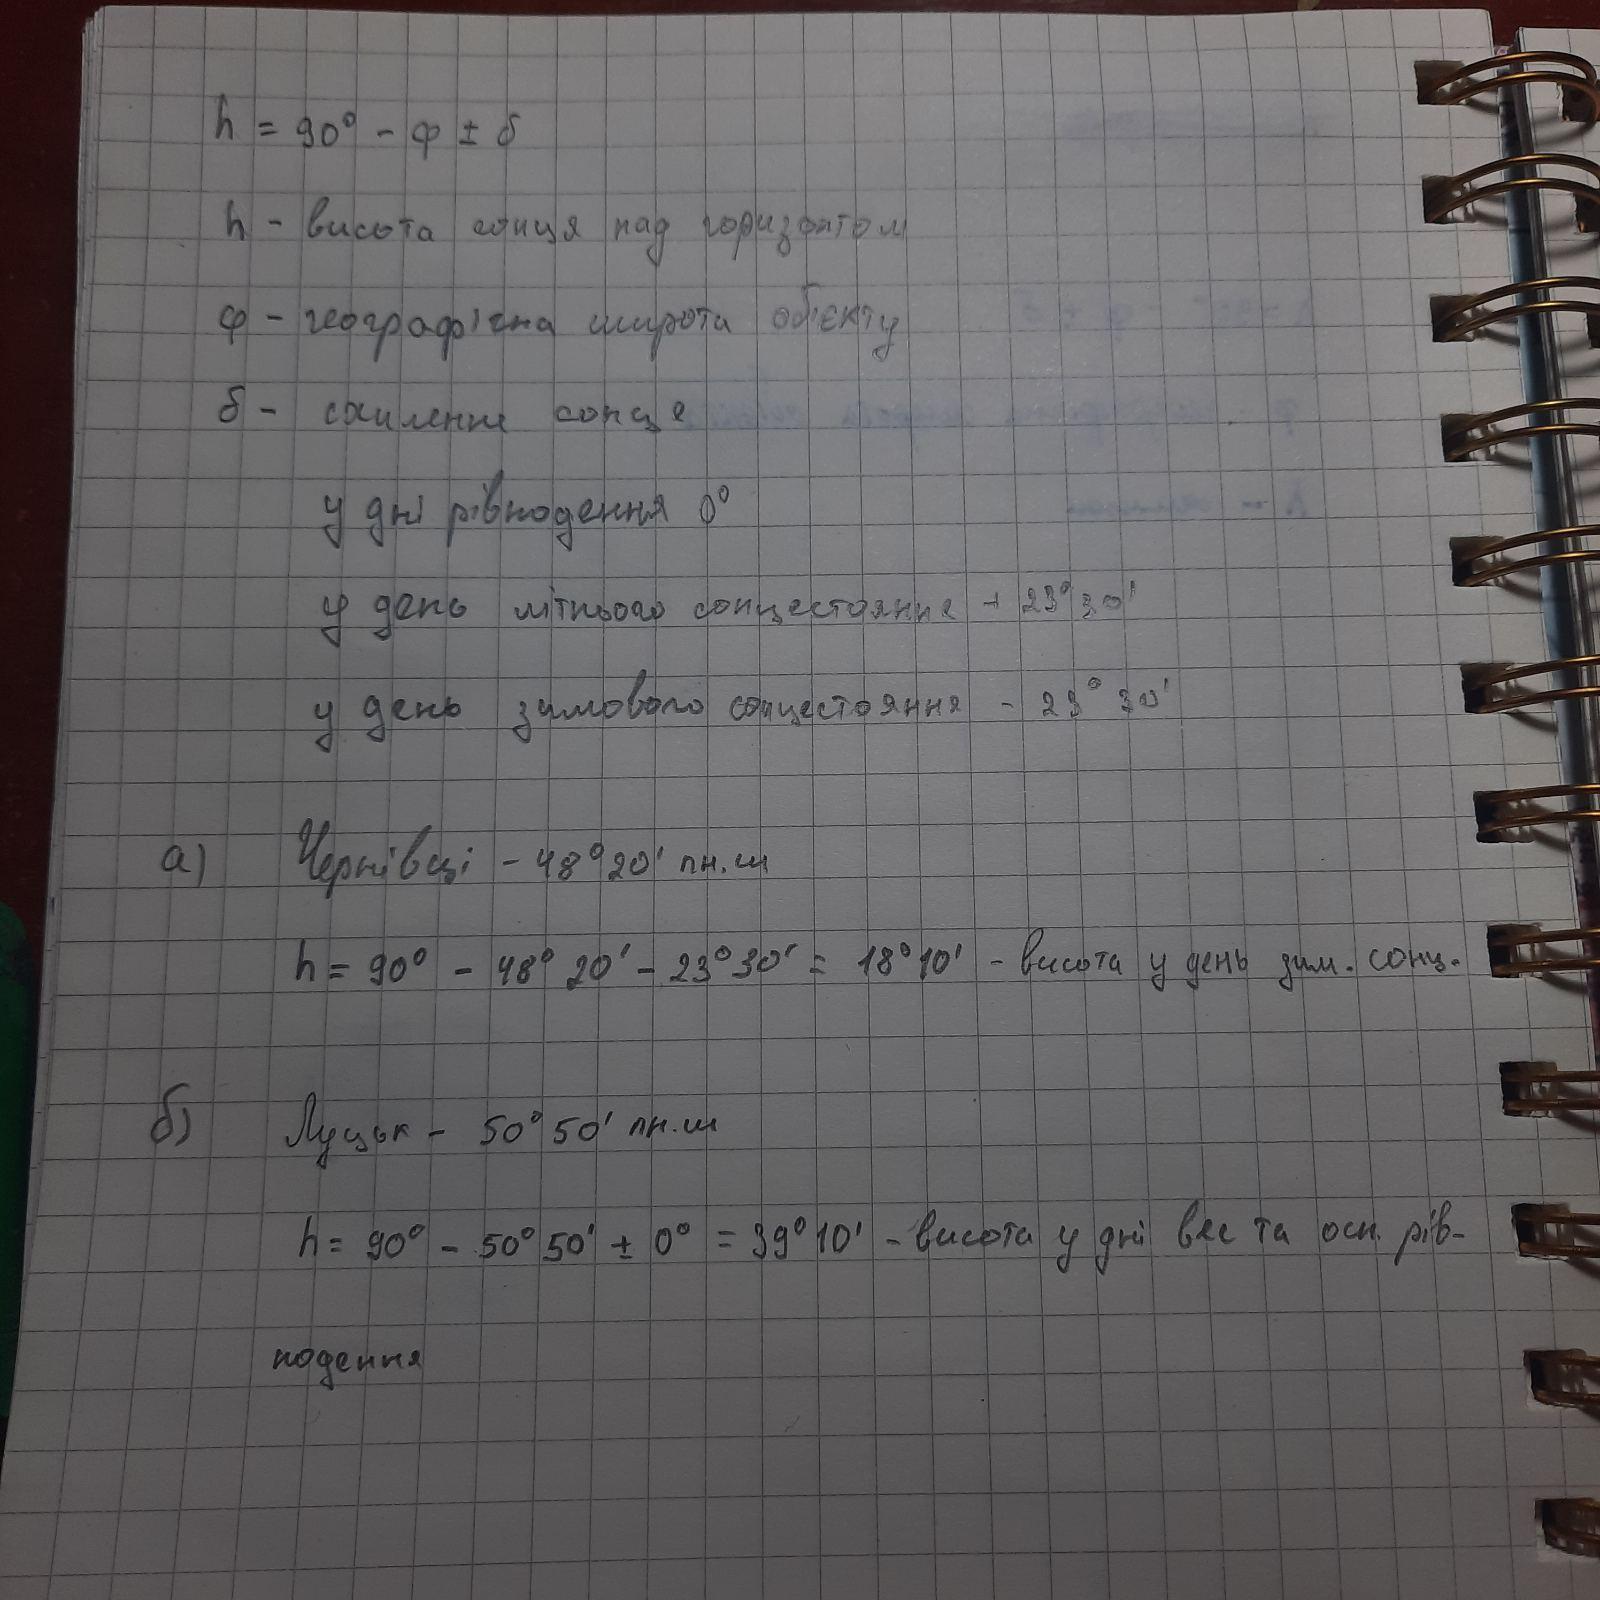 h = 90° - φ ± δ
h - висота сонця над горизонтом
φ - географічна широта об'єкту
δ - схилення сонця
у дні рівнодення 0°
у день літнього сонцестояння + 23°30'
у день зимового сонцестояння - 23°30'
а) Чернівці - 48°20' пн.ш
h = 90° - 48°20' - 23°30' = 18°10' - висота у день зим. сонц.
б) Луцьк - 50°50' пн.ш
h = 90° - 50°50' ± 0° = 39°10' - висота у дні вес та осн. рів-
нодення